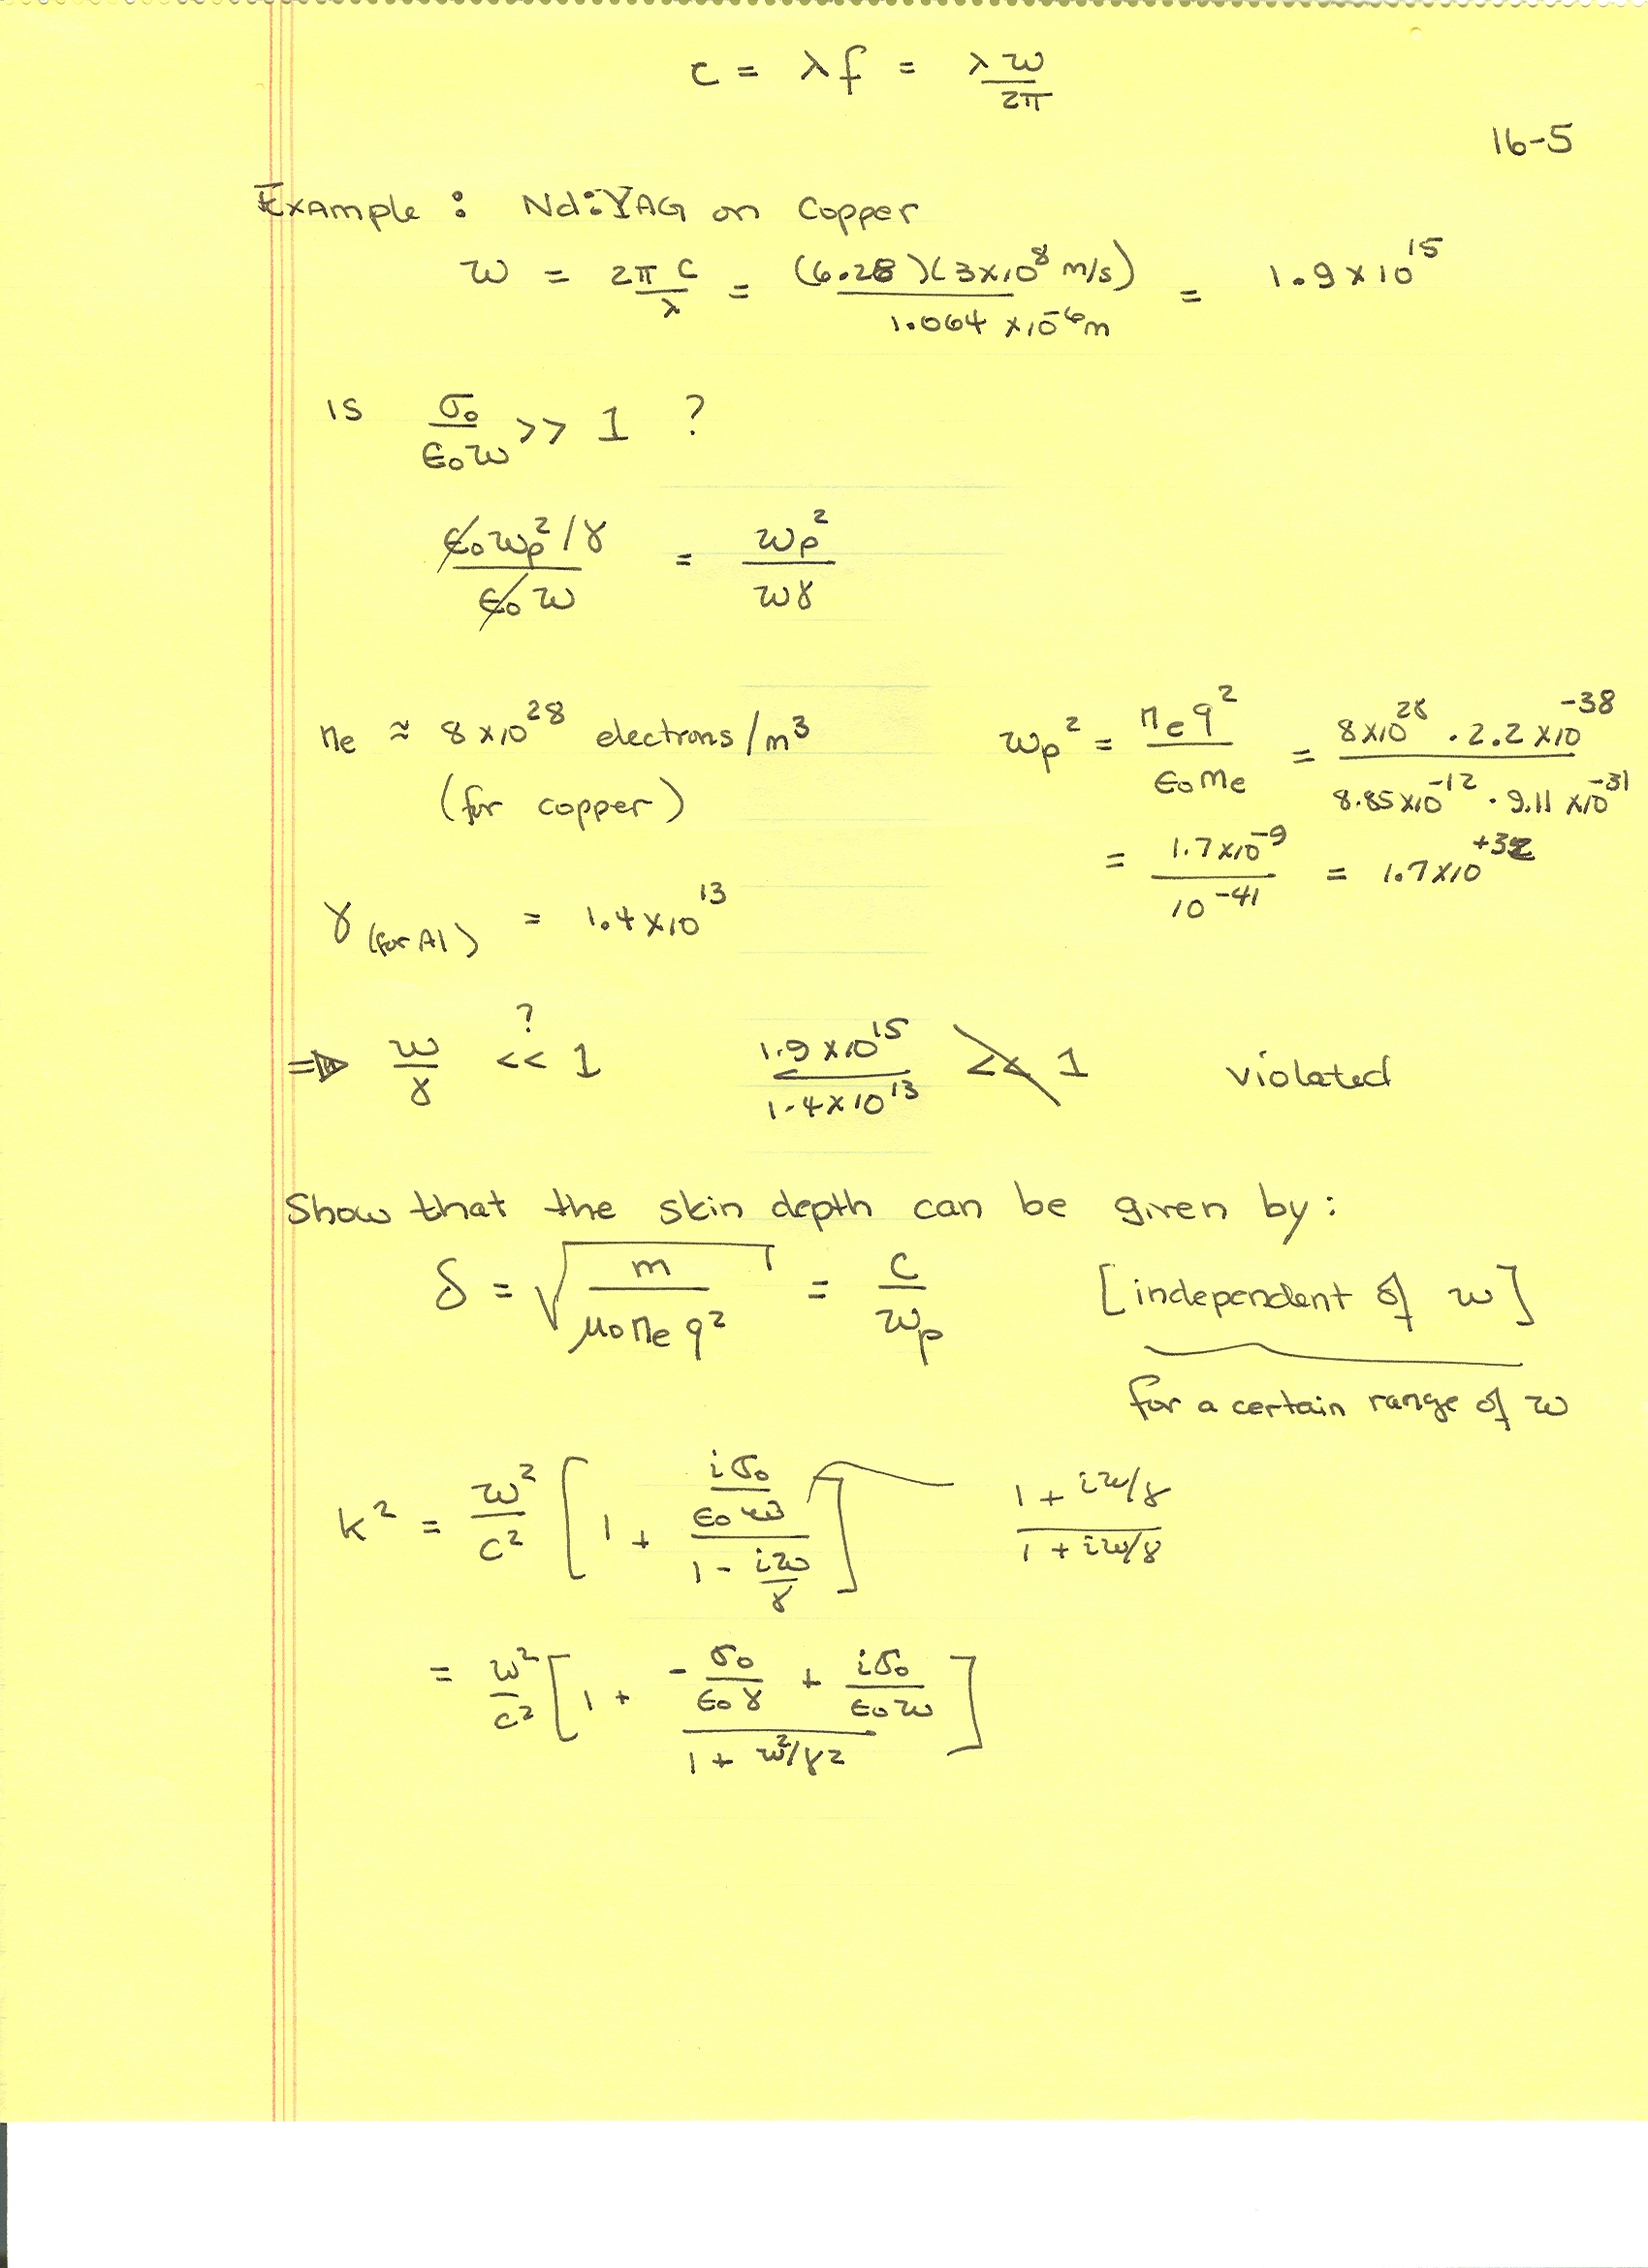 c = λf = λω/2π
16-5
Example : Nd:YAG on Copper
ω = 2πc/λ = (6.28)(3×10⁸ m/s)/1.064 ×10⁻⁶m = 1.9×10¹⁵
is σ₀/ε₀ω >> 1 ?
ε₀ωp²/γ / ε₀ω = ωp²/ωγ
ne ≈ 8×10²⁸ electrons/m³
(for copper)
ωp² = ne q²/ε₀me = 8×10²⁸ · 2.2×10⁻³⁸ / 8.85×10⁻¹² · 9.11×10⁻³¹
= 1.7×10⁻⁹/10⁻⁴¹ = 1.7×10⁺³²
γ (for Al) = 1.4×10¹³
⇒ ω/γ <<? 1 1.9×10¹⁵/1.4×10¹³ << 1 violated
Show that the skin depth can be given by:
δ = √(m/μ₀neq²) = c/ωp [independent of ω]
for a certain range of ω
k² = ω²/c² [1 + (iσ₀/ε₀ω)/(1 - iω/γ)] (1 + iω/γ)/(1 + iω/γ)
= ω²/c² [1 + (-σ₀/ε₀γ + iσ₀/ε₀ω)/(1 + ω²/γ²)]